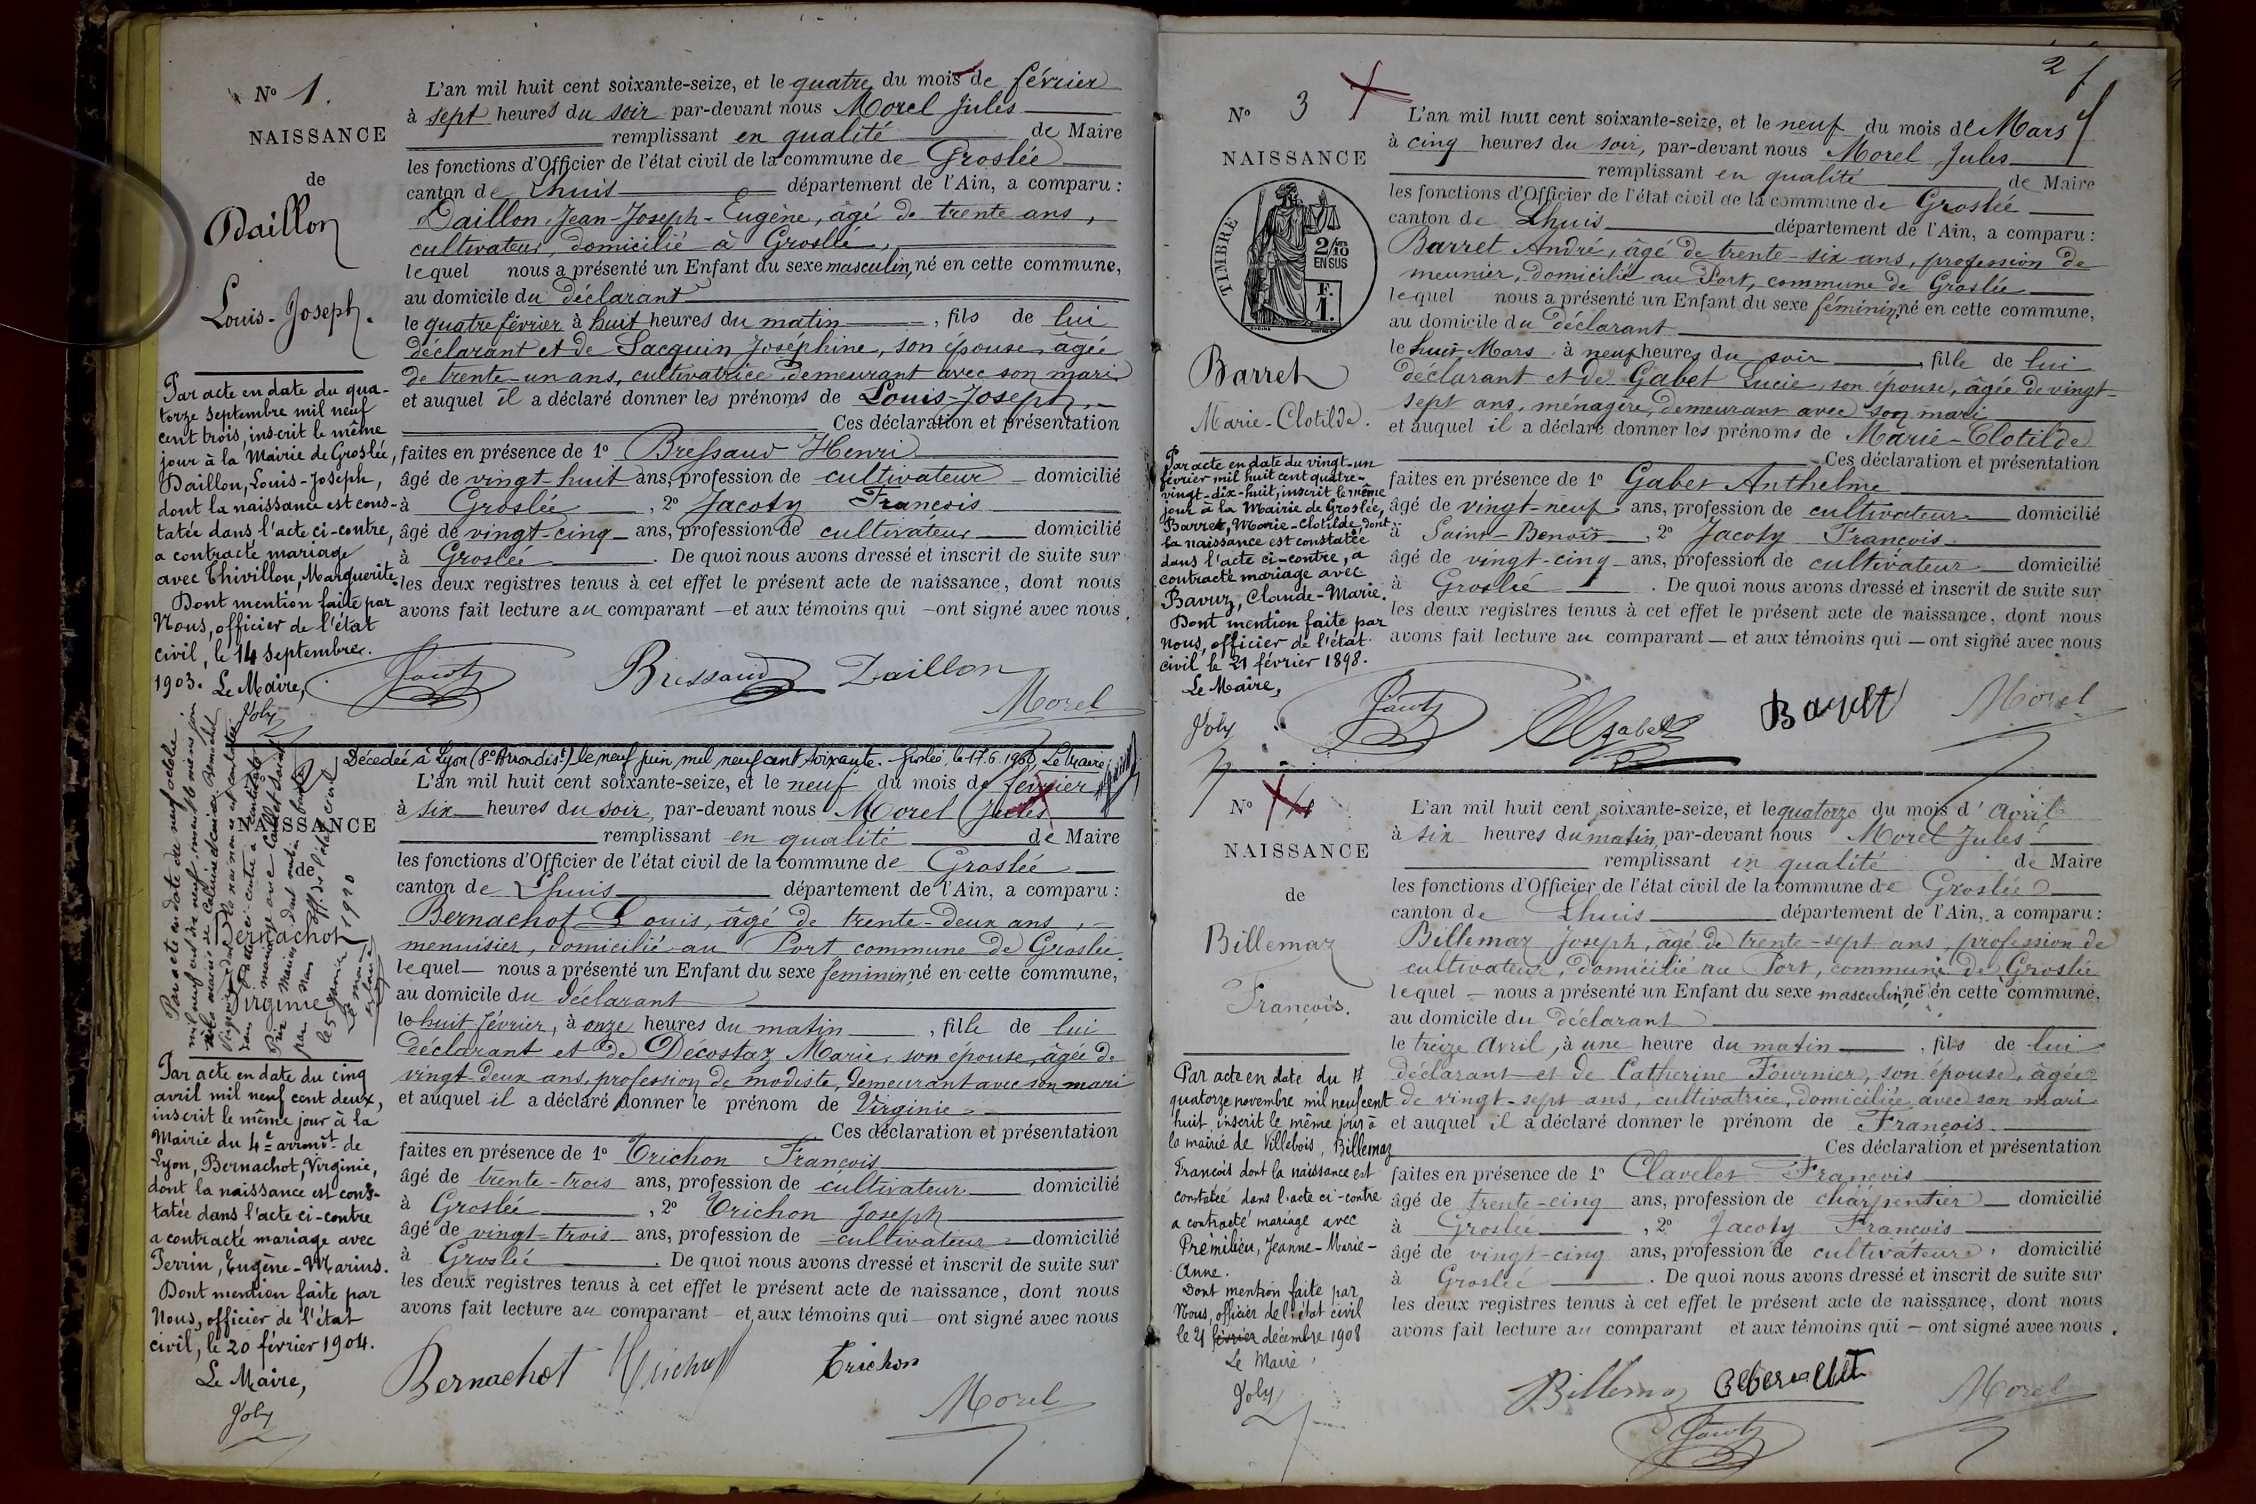 Nº 1.
NAISSANCE
de
Daillon
Louis-Joseph.
Par acte en date du qua-
torze septembre mil neuf
cent trois, inscrit le même
jour à la Mairie de Groslée,
Daillon, Louis-Joseph,
dont la naissance est cons-
tatée dans l'acte ci-contre,
a contracté mariage
avec Thivillon, Marguerite.
Dont mention faite par
Nous, officier de l'état
civil, le 14 septembre.
1903. Le Maire,
Joly
L'an mil huit cent soixante-seize, et le quatre du mois de février
à sept heures du soir par-devant nous Morel Jules
remplissant en qualité de Maire
les fonctions d'Officier de l'état civil de la commune de Groslée
canton de Lhuis département de l'Ain, a comparu :
Daillon, Jean-Joseph-Eugène, âgé de trente ans,
cultivateur, domicilié à Groslée,
lequel nous a présenté un Enfant du sexe masculin, né en cette commune,
au domicile du déclarant
le quatre février à huit heures du matin, fils de lui
déclarant et de Jacquin Joséphine, son épouse, âgée
de trente-un ans, cultivatrice demeurant avec son mari
et auquel il a déclaré donner les prénoms de Louis-Joseph,
Ces déclaration et présentation
faites en présence de 1º Bressaud Henri
âgé de vingt-huit ans, profession de cultivateur domicilié
à Groslée, 2º Jacoty François
âgé de vingt-cinq ans, profession de cultivateur domicilié
à Groslée. De quoi nous avons dressé et inscrit de suite sur
les deux registres tenus à cet effet le présent acte de naissance, dont nous
avons fait lecture au comparant – et aux témoins qui – ont signé avec nous.
Jacoty Bressaud Daillon
Morel
Décedée à Lyon (8e Arrondist) le neuf juin mil neuf cent soixante. Groslée, le 17.6.1960, Le Maire,
NAISSANCE
de
Bernachot
Virginie
Par acte en date du neuf octobre
mil neuf cent dix neuf, inscrit le même jour
le 5 janvier 1920
Le maire
Par acte en date du cinq
avril mil neuf cent deux,
inscrit le même jour à la
Mairie du 4e arrondt de
Lyon, Bernachot, Virginie,
dont la naissance est cons-
tatée dans l'acte ci-contre
a contracté mariage avec
Perrin, Eugène-Marius.
Dont mention faite par
Nous, officier de l'état
civil, le 20 février 1904.
Le Maire,
Joly
L'an mil huit cent soixante-seize, et le neuf du mois de février
à six heures du soir, par-devant nous Morel Jules
remplissant en qualité de Maire
les fonctions d'Officier de l'état civil de la commune de Groslée
canton de Lhuis département de l'Ain, a comparu :
Bernachot Louis, âgé de trente-deux ans,
menuisier, domicilié au Port commune de Groslée.
lequel – nous a présenté un Enfant du sexe féminin, né en cette commune,
au domicile du déclarant
le huit février, à onze heures du matin, fille de lui
déclarant et de Décostaz Marie, son épouse, âgée de
vingt-deux ans, profession de modiste, demeurant avec son mari
et auquel il a déclaré donner le prénom de Virginie
Ces déclaration et présentation
faites en présence de 1º Trichon François
âgé de trente-trois ans, profession de cultivateur domicilié
à Groslée, 2º Trichon Joseph
âgé de vingt-trois ans, profession de cultivateur domicilié
à Groslée. De quoi nous avons dressé et inscrit de suite sur
les deux registres tenus à cet effet le présent acte de naissance, dont nous
avons fait lecture au comparant – et aux témoins qui – ont signé avec nous
Bernachot Trichon Trichon
Morel
2
Nº 3
NAISSANCE
TIMBRE
2/10 EN SUS
F. 1.
Barret
Marie-Clotilde.
Par acte en date du vingt-un
février mil huit cent quatre-
vingt-dix-huit, inscrit le même
jour à la Mairie de Groslée,
Barret, Marie-Clotilde, dont
la naissance est constatée
dans l'acte ci-contre, a
contracté mariage avec
Bavuz, Claude-Marie.
Dont mention faite par
nous, officier de l'état
civil le 21 février 1898.
Le Maire,
Joly
L'an mil huit cent soixante-seize, et le neuf du mois de Mars
à cinq heures du soir, par-devant nous Morel Jules
remplissant en qualité de Maire
les fonctions d'Officier de l'état civil de la commune de Groslée
canton de Lhuis département de l'Ain, a comparu :
Barret André, âgé de trente-six ans, profession de
meunier, domicilié au Port, commune de Groslée
lequel nous a présenté un Enfant du sexe féminin, né en cette commune,
au domicile du déclarant
le huit Mars à neuf heures du soir, fille de lui
déclarant et de Gabet Lucie, son épouse, âgée de vingt-
sept ans, ménagère, demeurant avec son mari
et auquel il a déclaré donner les prénoms de Marie-Clotilde
Ces déclaration et présentation
faites en présence de 1º Gabet Anthelme
âgé de vingt-neuf ans, profession de cultivateur domicilié
à Saint-Benoît, 2º Jacoty François
âgé de vingt-cinq ans, profession de cultivateur domicilié
à Groslée. De quoi nous avons dressé et inscrit de suite sur
les deux registres tenus à cet effet le présent acte de naissance, dont nous
avons fait lecture au comparant – et aux témoins qui – ont signé avec nous
Jacoty Gabet Morel
Nº 4
NAISSANCE
de
Billemaz
François.
Par acte en date du
quatorze novembre mil neuf cent
huit, inscrit le même jour à
la mairie de Villebois, Billemaz
François dont la naissance est
constatée dans l'acte ci-contre
a contracté mariage avec
Prémilieu, Jeanne-Marie-
Anne.
Dont mention faite par
Nous, officier de l'état civil
le 21 février décembre 1908
Le Maire
Joly
L'an mil huit cent soixante-seize, et le quatorze du mois d'avril
à six heures du matin, par-devant nous Morel Jules
remplissant en qualité de Maire
les fonctions d'Officier de l'état civil de la commune de Groslée
canton de Lhuis département de l'Ain, a comparu :
Billemaz Joseph, âgé de trente-sept ans, profession de
cultivateur, domicilié au Port, commune de Groslée
lequel – nous a présenté un Enfant du sexe masculin, né en cette commune,
au domicile du déclarant
le treize avril, à une heure du matin, fils de lui
déclarant et de Catherine Fournier, son épouse, âgée
de vingt-sept ans, cultivatrice, domiciliée avec son mari
et auquel il a déclaré donner le prénom de François
Ces déclaration et présentation
faites en présence de 1º Clavelet François
âgé de trente-cinq ans, profession de charpentier domicilié
à Groslée, 2º Jacoty François
âgé de vingt-cinq ans, profession de cultivateur, domicilié
à Groslée. De quoi nous avons dressé et inscrit de suite sur
les deux registres tenus à cet effet le présent acte de naissance, dont nous
avons fait lecture au comparant et aux témoins qui – ont signé avec nous.
Billemaz Morel
Jacoty